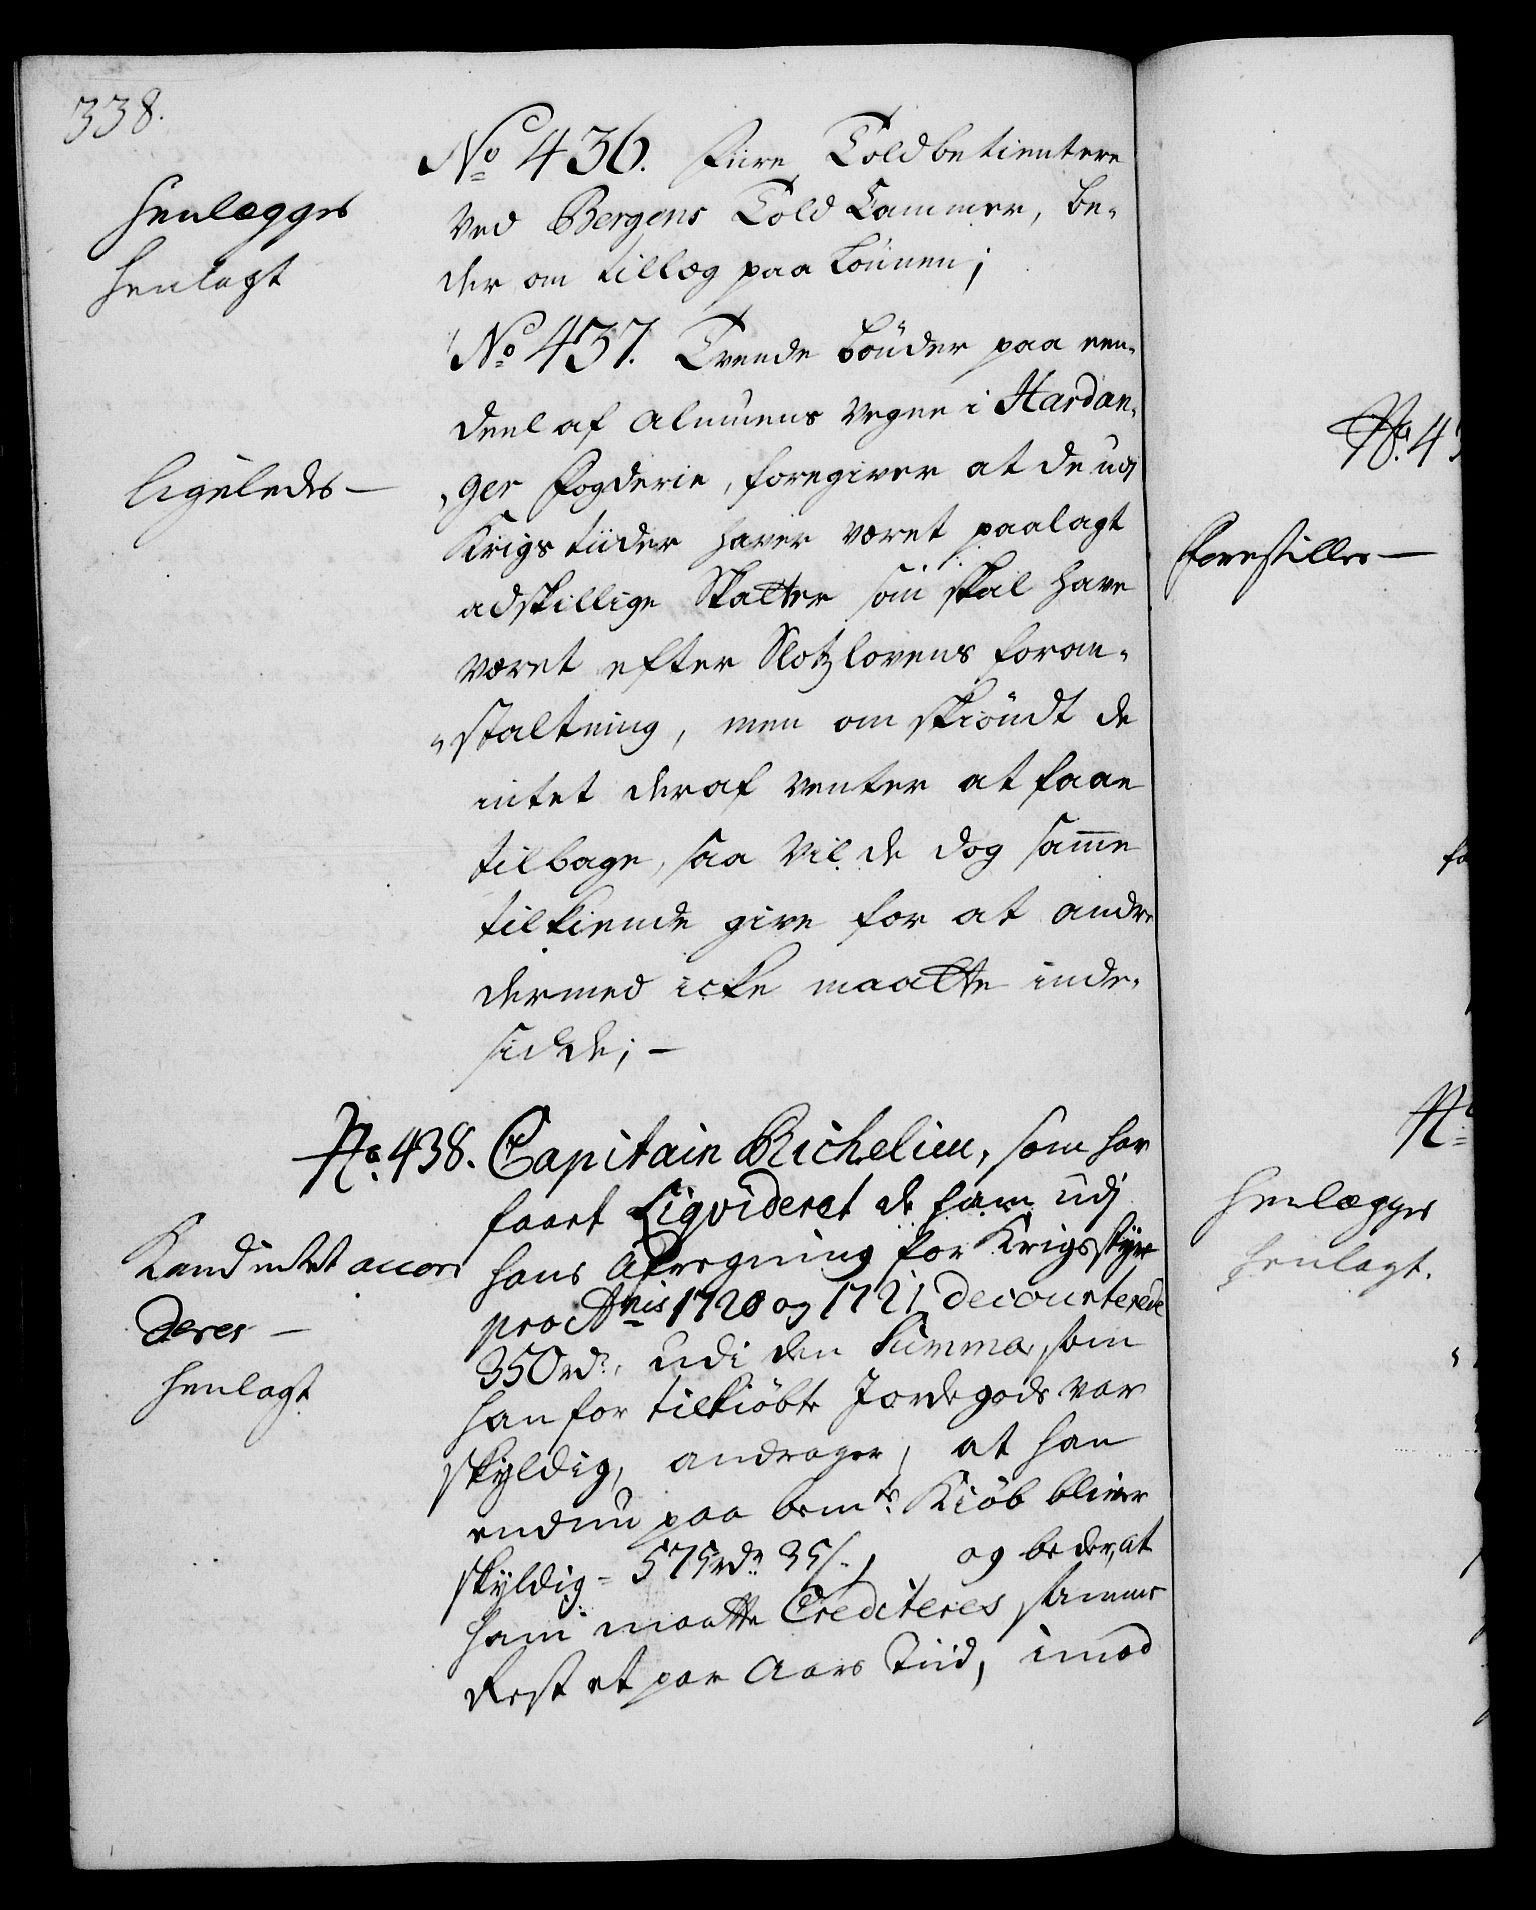 338.
No 436. Fiire Toldbetientere
ved Bergens Told Cammer, be-
der om tillæg paa Lönnen;
Henlægges
henlagt
No 437. Trende Bönder paa een-
deel af Almuens Vegne i Hardan-
ger Fogderie, foregiver at de udj
Krigs tiider haver været paalagt
adskillige Skatter som skal have
været efter Slotzlovens foran-
staltning, men om skiöndt de
intet deraf venter at faae
tilbage, saa vil de dog samme
tilkiende give for at andre
dermed icke maatte inde-
sidde;
ligeledes
No. 438. Capitain Richelieu, som har
faaet Liqvideret de ham udj
hans Afregning for Krigsstyr
pro Anis 1720 og 1721 decourterede
350 rdr., udi den Summa, som
han for tilkiöbte Jordegods var
skyldig, andrager, at han
endnu paa bemte Kiöb bliver
skyldig = 575 rdr 35 s., og beder, at
ham maatte Crediteres samme
Rest et par Aars Tiid, imod
Kand intet accor
deres
henlagt
No. 43
Forestilles
fo
No
Henlægges
henlagt.